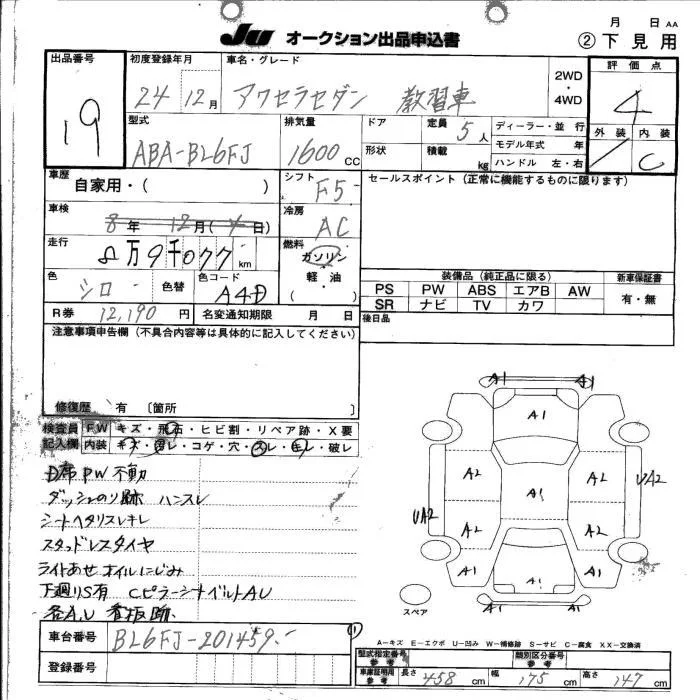 JU オークション出品申込書
月 日 AA
② 下見用
出品番号
19
初度登録年月
24 12月
車名・グレード
アクセラセダン 教習車
2WD
・
4WD
評価点
4
外装 内装
C
型式
ABA-BL6FJ
排気量
1600 CC
ドア
定員 5人
ディーラー・並行
形状
積載 kg
モデル年式 年
ハンドル 左・右
車歴 自家用・( )
シフト F5
セールスポイント (正常に機能するものに限ります)
車検 8年 12月( 日)
冷房 AC
走行 8万9千077 km
燃料 ガソリン
・
軽・油
( )
色 シロ
色替
色コード A4D
装備品 (純正品に限る)
新車保証書
PS PW ABS エアB AW
有・無
SR ナビ TV カワ
R券 12,190円
名変通知期限 月 日
後日品
注意事項申告欄 (不具合内容等は具体的に記入してください)
修復歴 有 〔箇所
検査員 F.W キズ・飛石・ヒビ割・リペア跡・X要
記入欄 内装 キズ・汚レ・コゲ・穴・スレ・キレ・破レ
D席PW不動
ダッシュのり跡 ハンスレ
シートヘタリスレキレ
スタッドレスタイヤ
ライトあせ オイルにじみ
下廻りS有 CピラーシートベルトAU
各A.U 看板跡
A1 A1
A1
A2 A2
A1
UA2
UA2
A2 A2
A1 A1 A1
A1
スペア
車台番号 BL6FJ-201459
①
登録番号
A-キズ E-エクボ U-凹み W-補修跡 S-サビ C-腐食 XX-交換済
型式指定番号 参考
類別区分番号 参考
車庫証明用 参考 長さ 458 cm 幅 175 cm 高さ 147 cm